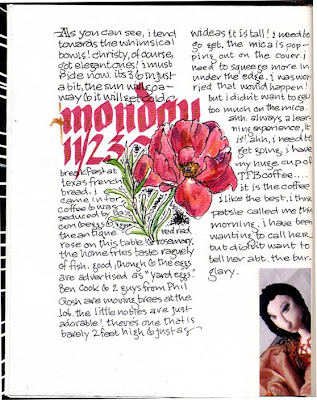 As you can see, i tend
towards the whimsical
bowls! christy, of course,
got elegant ones! i must
ride now. its 3:6 in just
a bit, the sun will go a-
way & it will get cold
monday
11/23
breakfast at
texas french
bread. i
came in for
coffee & was
seduced by
the antique
rose on this table & rosemary.
red red
the home fries taste vaguely
of fish. good, though & the eggs
are advertised as "yard eggs."
Ben Cook & 2 guys from Phil
Gosh are moving trees at the
lot. the little nobies are just
adorable! there's one that is
barely 2 feet high & just as
wide as it is tall! i need to
go get. the mica is pop-
ping out on the cover. i
need to squeege more in
under the edge. i was wor-
ried that would happen!
but i didn't want to get
too much on the mica.
ahh. always a lear-
ning experience, it
is! ahh, i need to
get going, i have
my huge cup of
TFB coffee....
it is the coffee
i like the best, i think
patsie called me this
morning. i have been
wanting to call her
but didn't want to
tell her abt. the bur-
glary.